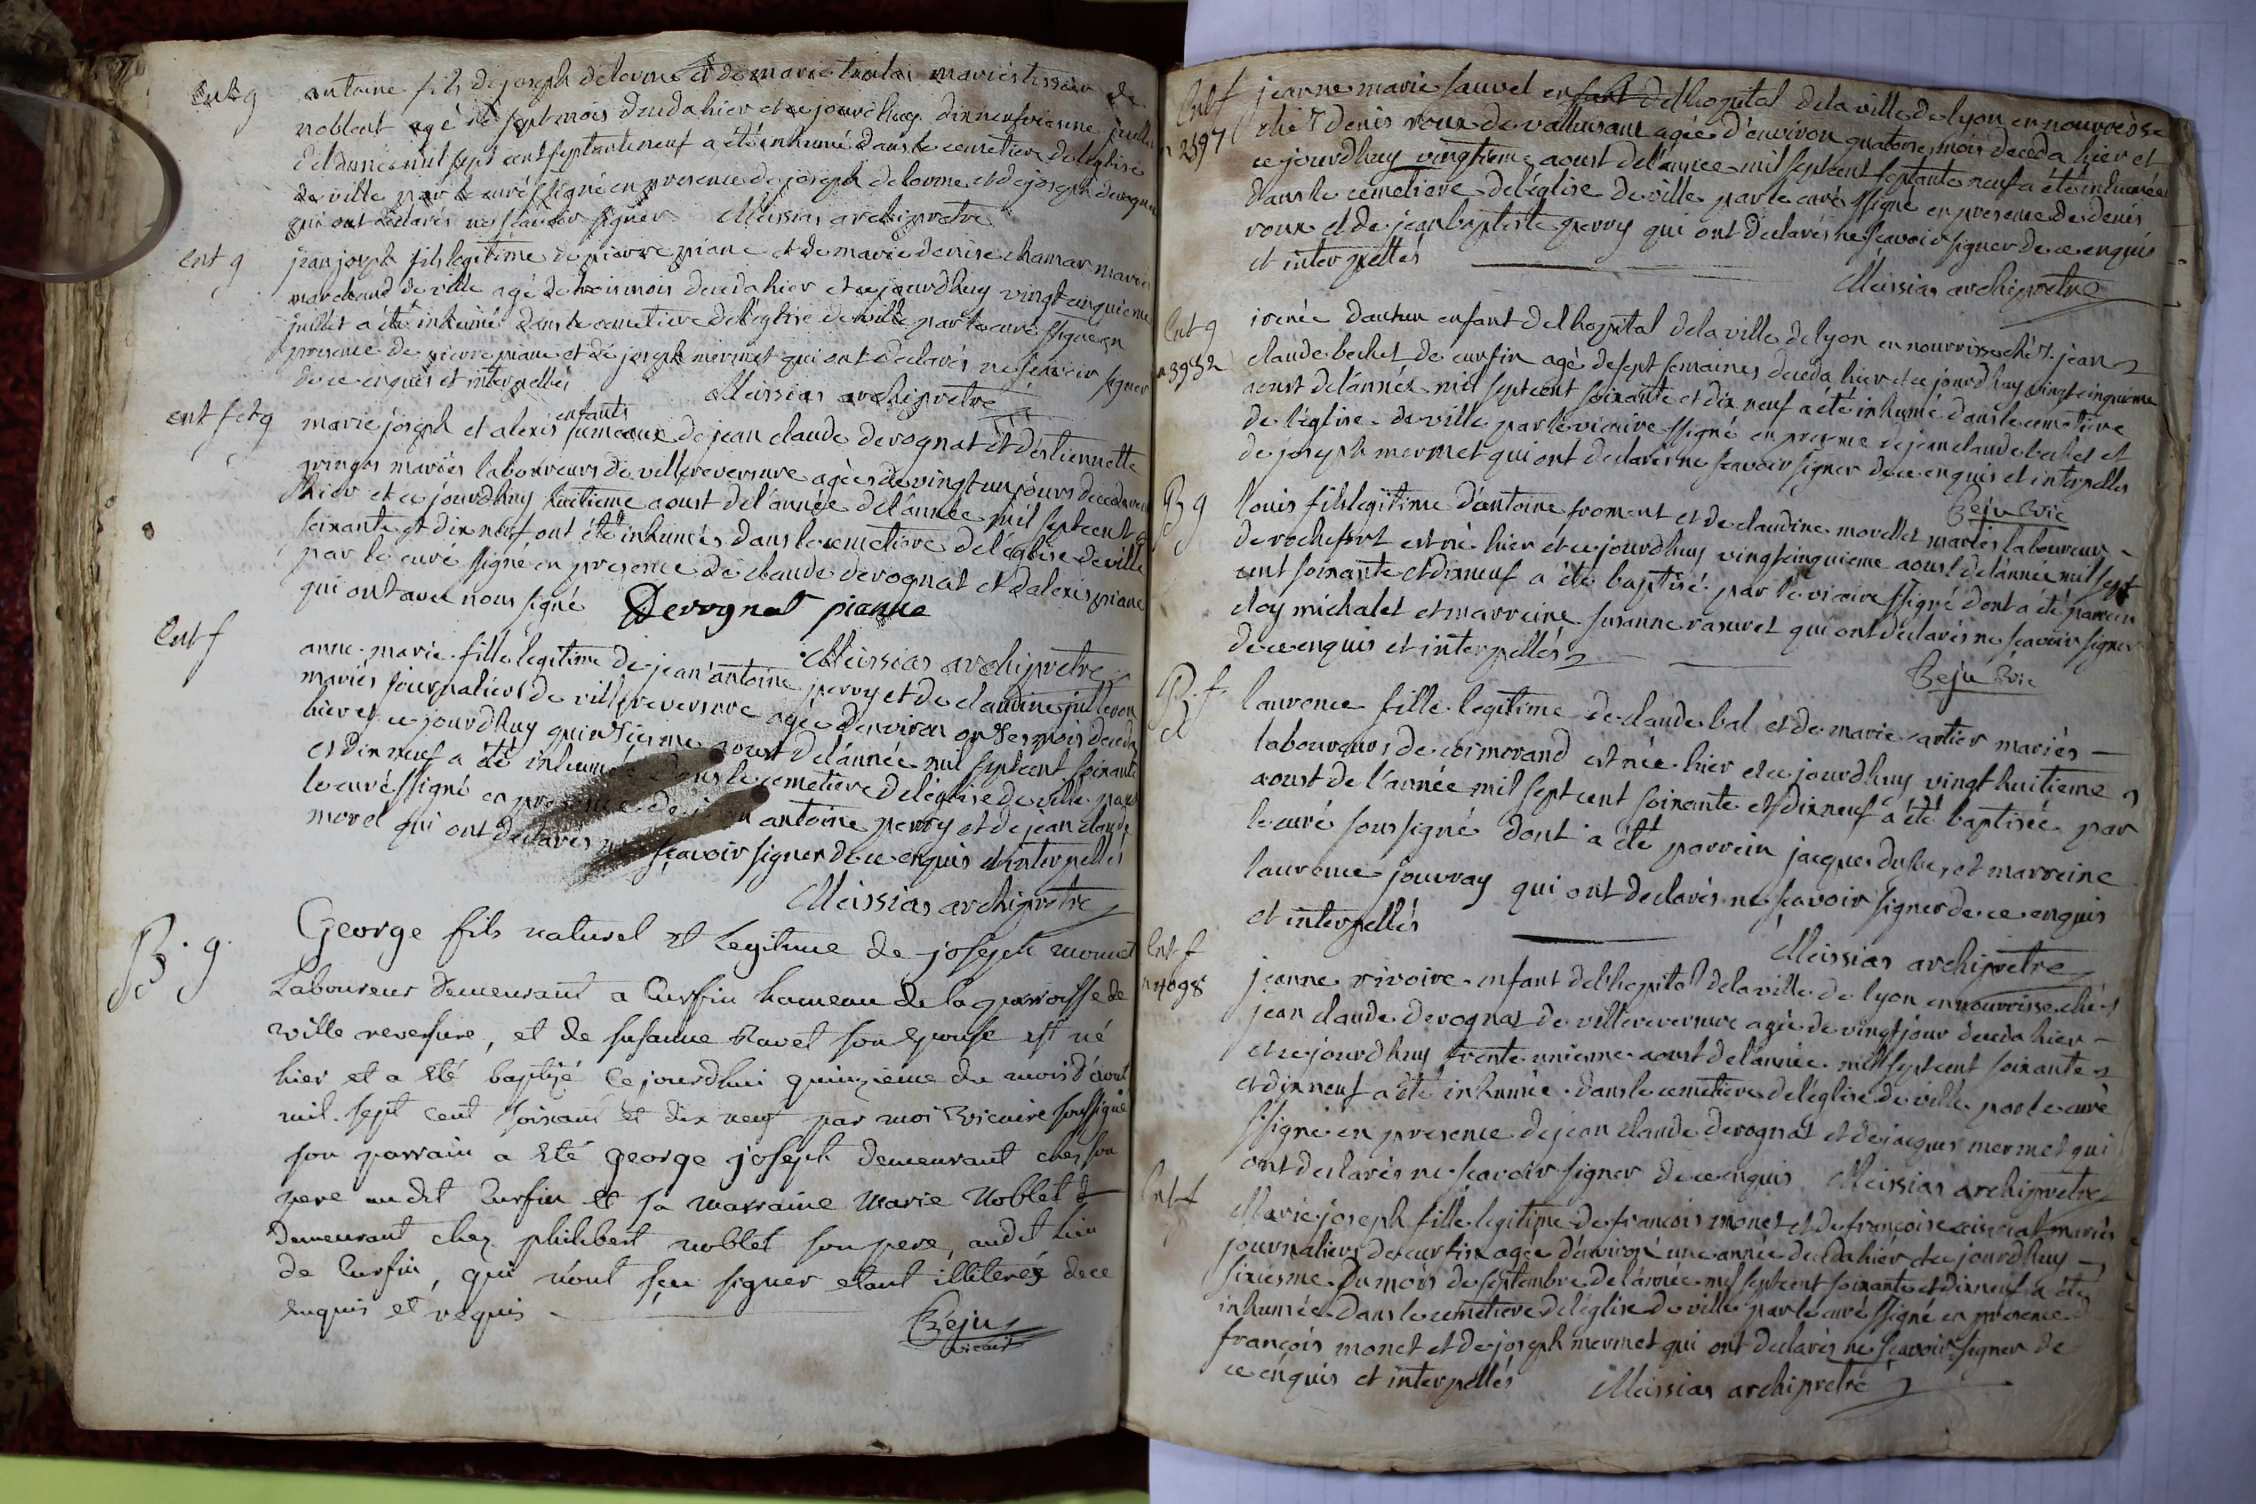 Ent g antoine fils de joseph delorme et de marie mariés tissier de
noblent agé de sept mois deceda hier et ce jourdhuy dixneufviesme juillet
de l'année mil sept cent septante neuf a été inhumé dans le cemetiere de leglise
de ville par le curé ssigné en presence de joseph delorme et de joseph
qui ont declarés ne scavoir signer Meissias archiprêtre
Ent g jean joseph fils legitime de pierre piane et de marie denise chamar mariés
marchand de ville agé de trois mois deceda hier et ce jourdhuy vingt cinquieme
juillet a été inhumé dans le cemetiere de l'église de ville par le curé ssigné en
presence de pierre piane et de joseph mermet qui ont declarés ne scavoir signer
de ce enquis et interpellés Meissias archiprêtre
ent f et g marie joseph et alexis enfants jumeaux de jean claude derognat et d'estiennette
mariés laboureurs de villereversure agées de vingt un jours decederent
hier et ce jourdhuy huitieme aoust de l'année de l'année mil sept cent
soixante et dix neuf ont été inhumés dans le cemetiere de l'église de ville
par le curé ssigné en presence de claude derognat et d'alexis piane
qui ont avec nous signé Derognat pianne
Meissias archiprêtre
Ent f anne marie fille legitime de jean antoine perry et de claudine
mariés journaliers de villereversure agée d'environ onze mois deceda
hier et ce jourdhuy quinziesme aoust de l'année mil sept cent soixante
et dix neuf a été inhumée dans le cemetiere de l'église de ville par
le curé ssigné en presence de jean antoine perry et de jean claude
morel qui ont declarés ne sçavoir signer de ce enquis et interpellés
Meissias archiprêtre
B. g. George fils naturel et legitime de joseph monet
Laboureur demeurant a Curfin hameau de la parroisse de
ville reversure, et de susanne Ravet son epouse est né
hier et a été baptizé ce jourdhui quinzieme du mois d'aout
mil sept cent soixant et dix neuf par moi Vicaire soussigné
son parrain a été george joseph demeurant chez son
pere au dit Curfin et sa marraine marie Noblet
demeurant chez philibert noblet son pere, audit lieu
de Curfin, qui n'ont sçu signer etant illiterés de ce
enquis et requis
Béju
vicaire
Ent f jeanne marie sauvel enfant de l'hopital de la ville de lyon en nourrisse
n 2397 chéz denis roux de valluisant agée d'environ quatorze mois deceda hier et
ce jourdhuy vingtieme aoust de l'année mil sept cent septante neuf a été inhumée
dans le cemetiere de l'église de ville par le curé ssigné en presence de denis
roux et de jean baptiste perry qui ont declarés ne scavoir signer de ce enquis
et interpellés
Meissias archiprêtre
Ent g irenée dautun enfant de l hopital de la ville de lyon en nourrisse chéz jean
n 3952 claude bechet de curfin agé de sept semaines deceda hier et ce jourdhuy vingt cinquieme
aoust de l'année mil sept cent soixante et dix neuf a été inhumé dans le cemetiere
de l'église de ville par le vicaire ssigné en presence de jean claude bechet et
de joseph mermet qui ont declarés ne scavoir signer de ce enquis et interpellés
Beju Vic
B g louis fils legitime d'antoine froment et de claudine morellet mariés laboureur
de rochefort est né hier et ce jourdhuy vingt cinquieme aoust de l'année mil sept
cent soixante et dixneuf a été baptisé par le vicaire ssigné dont a été parrein
eloy michalet et marreine susanne rasuret qui ont declarés ne scavoir signer
de ce enquis et interpellés
Beju Vic
B. f. laurence fille legitime de claude bal et de marie cartier mariés
laboureurs de coimorand est née hier et ce jourdhuy vingt huitieme
aoust de l'année mil sept cent soixante et dixneuf a été baptisée par
le curé sous signé dont a été parrein jacques dubes et marreine
laurence jouvray qui ont declarés ne sçavoir signer de ce enquis
et interpellés
Meissias archiprêtre
Ent f jeanne rivoire enfant de l'hopital de la ville de lyon en nourrisse chéz
n 4098 jean claude derognat de villereversure agée de vingt jour deceda hier
et ce jourdhuy trente unieme aoust de l'année mil sept cent soixante
et dixneuf a été inhumée dans le cemetiere de l'église de ville par le curé
ssigné en presence de jean claude derognat et de jacques mermet qui
ont declarés ne scavoir signer de ce enquis Meissias archiprêtre
Ent f Marie joseph fille legitime de françois monet et de françoise mariés
journaliers de curfin agée d'environ une année deceda hier et ce jourdhuy
sixiesme du mois de septembre de l'année mil sept cent soixante et dixneuf a été
inhumée dans le cemetiere de l'église de ville par le curé ssigné en presence d
françois monet et de joseph mermet qui ont declarés ne scavoir signer de
ce enquis et interpellés Meissias archiprêtre